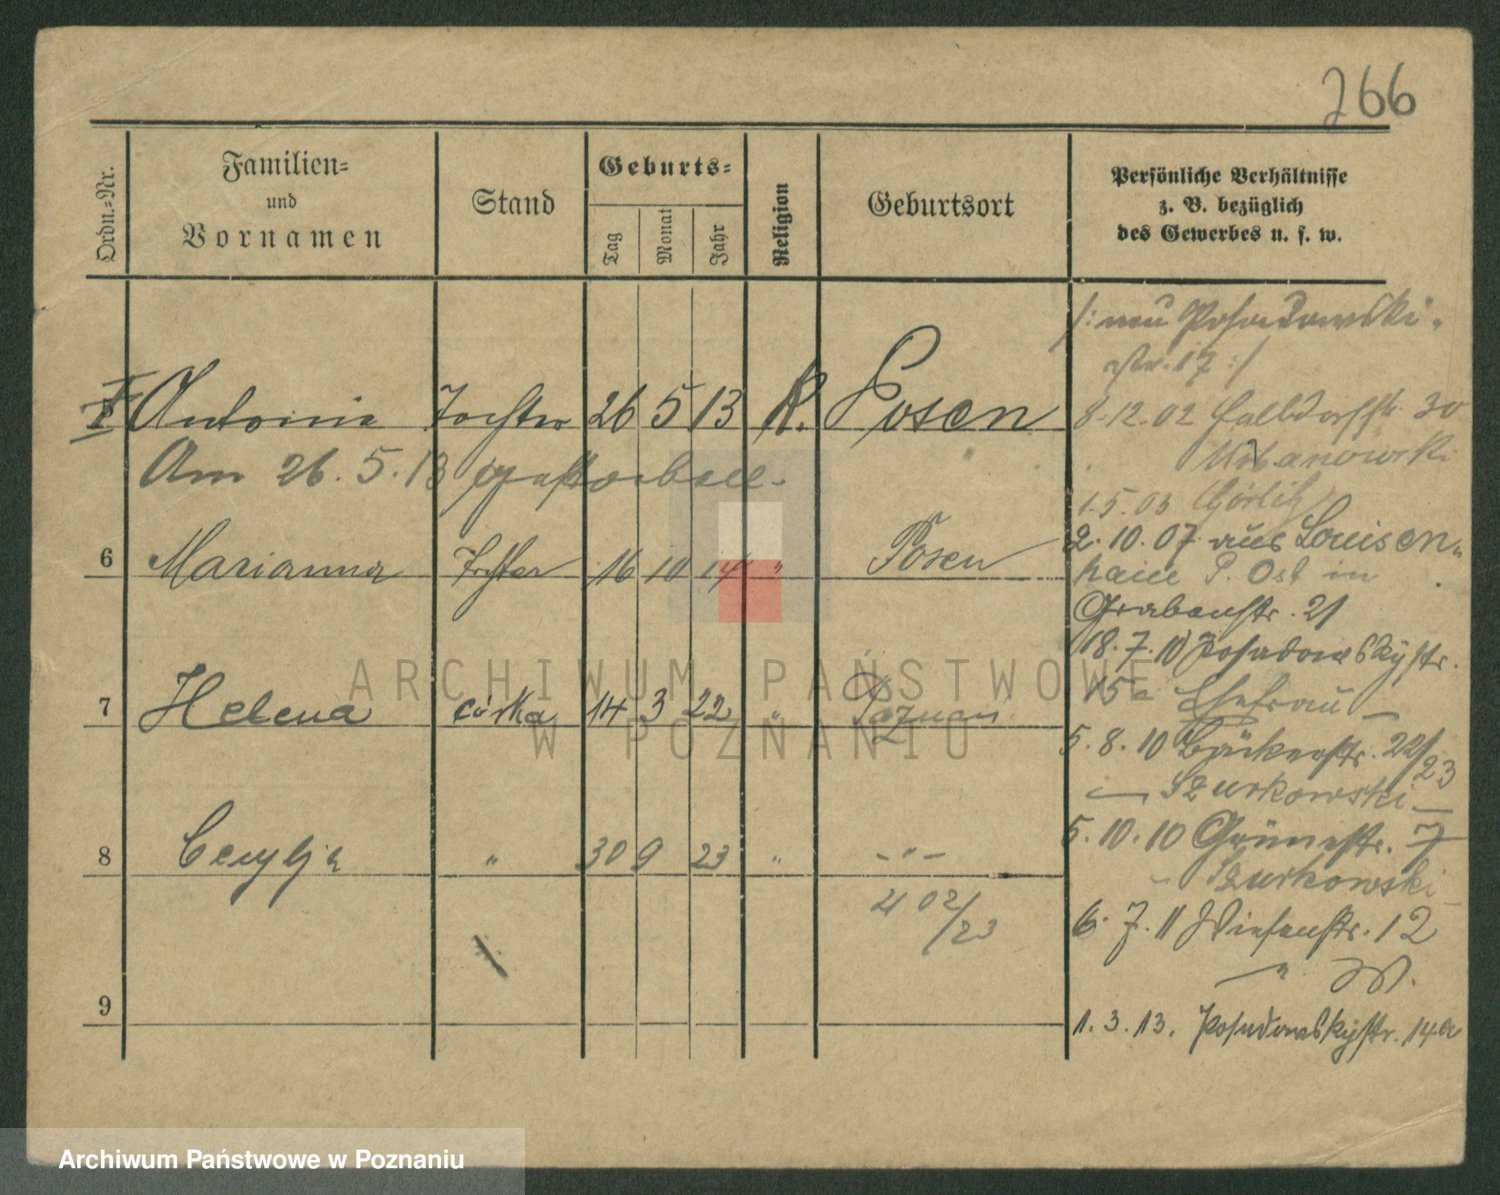 266
Ordn.-Nr.
Familien-
und
Vornamen
Stand
Geburts-
Tag
Monat
Jahr
Religion
Geburtsort
Persönliche Verhältnisse
z. B. bezüglich
des Gewerbes u. s. w.
Antonie Tochter 26 5 13 K. Posen
Am 26.5.13 gestorben.
6 Marianna Tochter 16 10 14 " Posen
7 Helena córka 14 3 22 " Poznań
8 Cecylja " 30 9 23 " - " -
02/23
9
/: neu Posadowski-
str. 17 :/
8.12.02 30
Urbanowski
1.5.03 Görlitz
2.10.07 aus Louisen-
hain P. Ost in
Grabenstr. 21
18.7.10 Posadowskystr.
15a Ehefrau
5.8.10 Bäckerstr. 22/23
Szurkowski
5.10.10 Grünestr. 7
Szurkowski
6.7.11 Wiesenstr. 12
" W.
1.3.13. Posadowskystr. 14a
ARCHIWUM PAŃSTWOWE
W POZNANIU
Archiwum Państwowe w Poznaniu